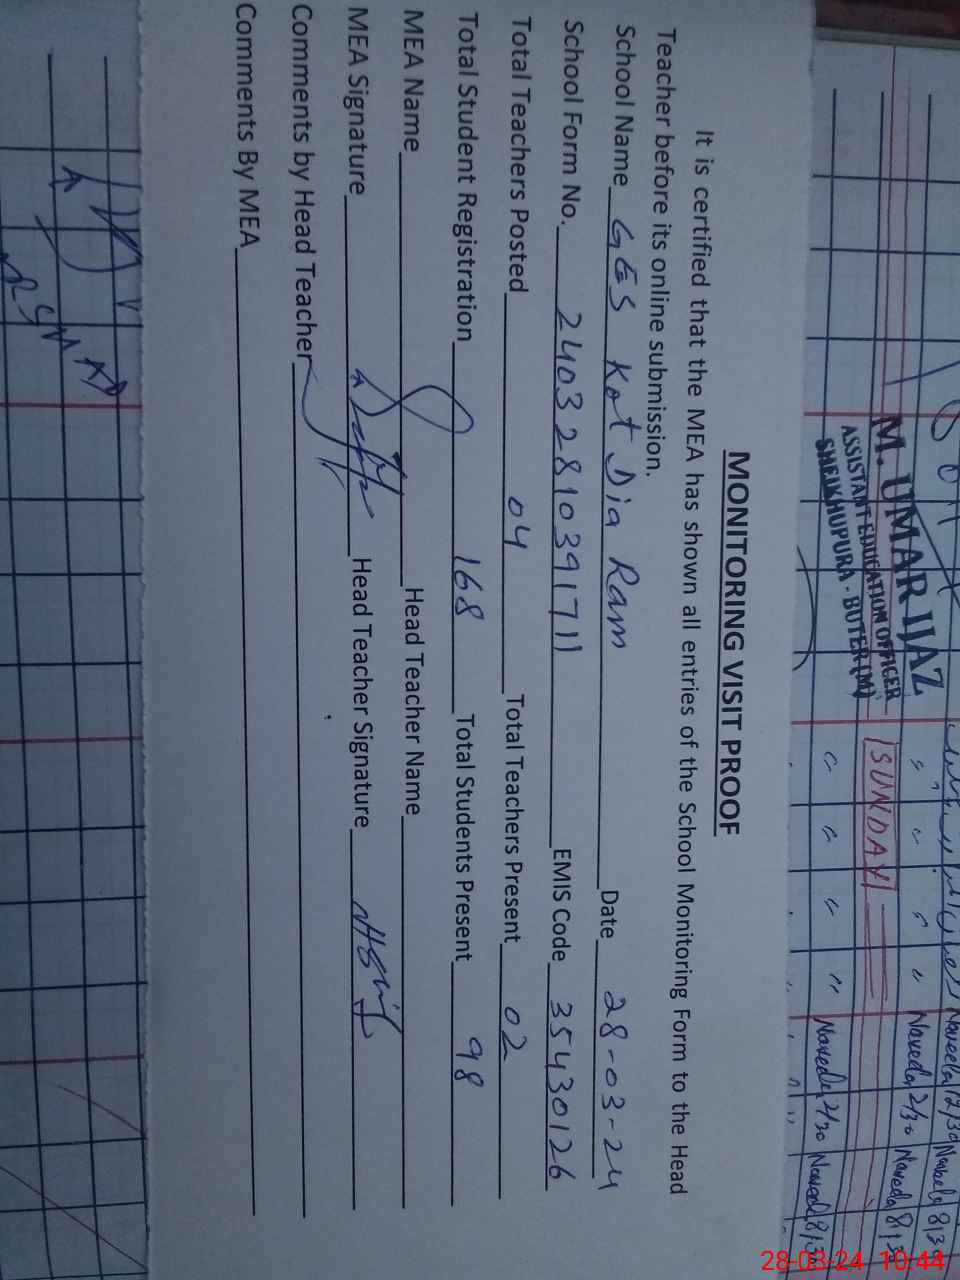 M. UMAR IJAZ
ASSISTANT EDUCATION OFFICER
SHEIKHUPURA - BUTER (M)
SUNDAY
Naveeda 12/30 Naveeda 8/30
Naveeda 2/30 Naveeda 8/30
Naveeda 2/30 Naveeda 8/30
MONITORING VISIT PROOF
It is certified that the MEA has shown all entries of the School Monitoring Form to the Head
Teacher before its online submission.
School Name GES Kot Dia Ram Date 28-03-24
School Form No. 24032810391711 EMIS Code 35430126
Total Teachers Posted 04 Total Teachers Present 02
Total Student Registration 168 Total Students Present 98
MEA Name Head Teacher Name
MEA Signature Head Teacher Signature
Comments by Head Teacher
Comments By MEA
28-03-24 10:44